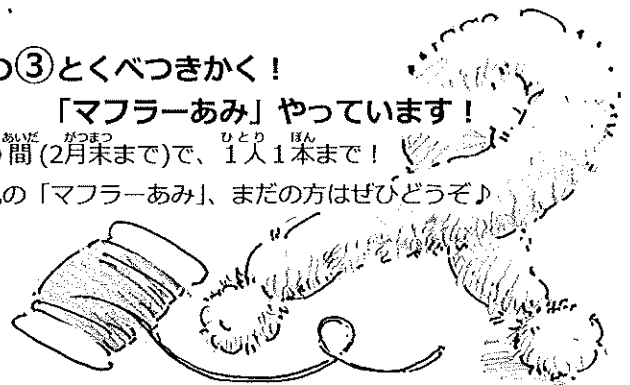 ③とくべつきかく！
「マフラーあみ」やっています！
間(2月末まで)で、1人1本まで！
の「マフラーあみ」、まだの方はぜひどうぞ♪